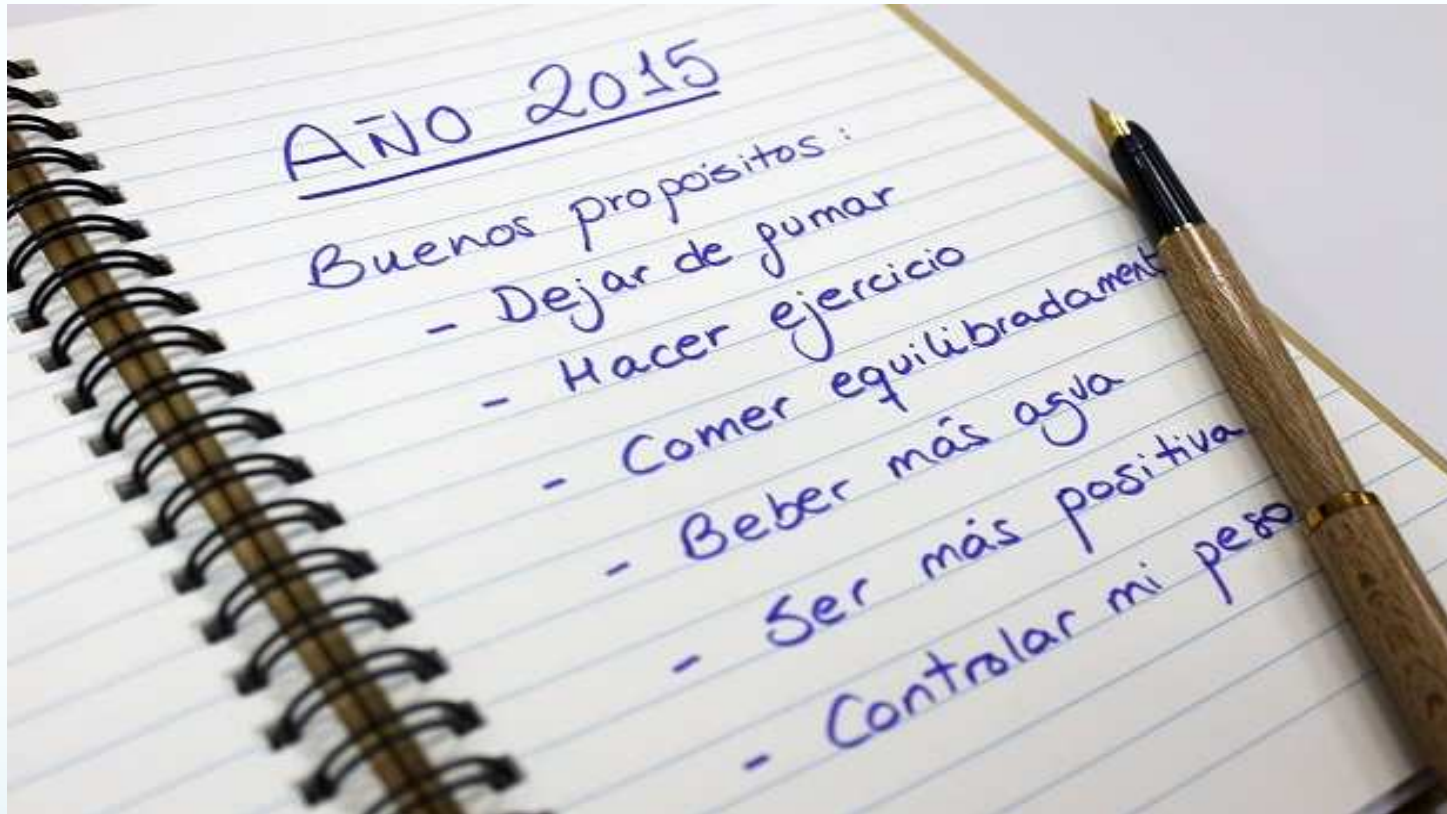 AÑO 2015
Buenos propósitos:
- Dejar de fumar
- Hacer ejercicio
- Comer equilibradament
- Beber más agua
- Ser más positiva
- Controlar mi peso